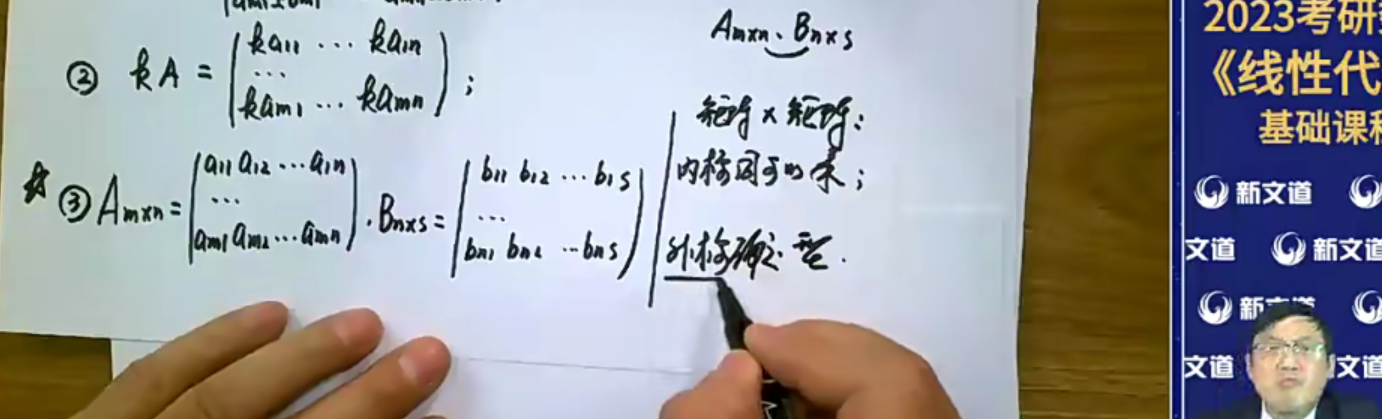 ② kA = (ka₁₁ ⋯ ka₁n
⋯
kam₁ ⋯ kamn) ;
☆ ③ Am×n = (a₁₁ a₁₂ ⋯ a₁n
⋯
am₁ am₂ ⋯ amn) . Bn×s = (b₁₁ b₁₂ ⋯ b₁s
⋯
bn₁ bn₂ ⋯ bns)
Am×n 、 Bn×s
矩阵 × 矩阵:
内标同可以乘;
外标确定型.
2023考研
《线性代
基础课程
新文道
文道 新文道
新文道
文道 文道